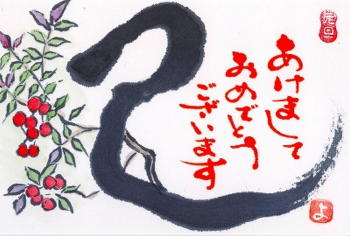 あけまして
おめでとう
ございます
元旦
よ